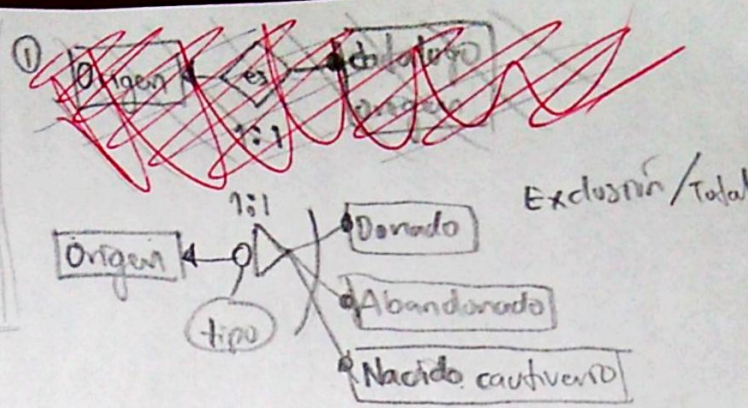 ①
Origen es
1:1
1:1
Exclusión/Total
Origen Donado
tipo Abandonado
Nacido cautiverio